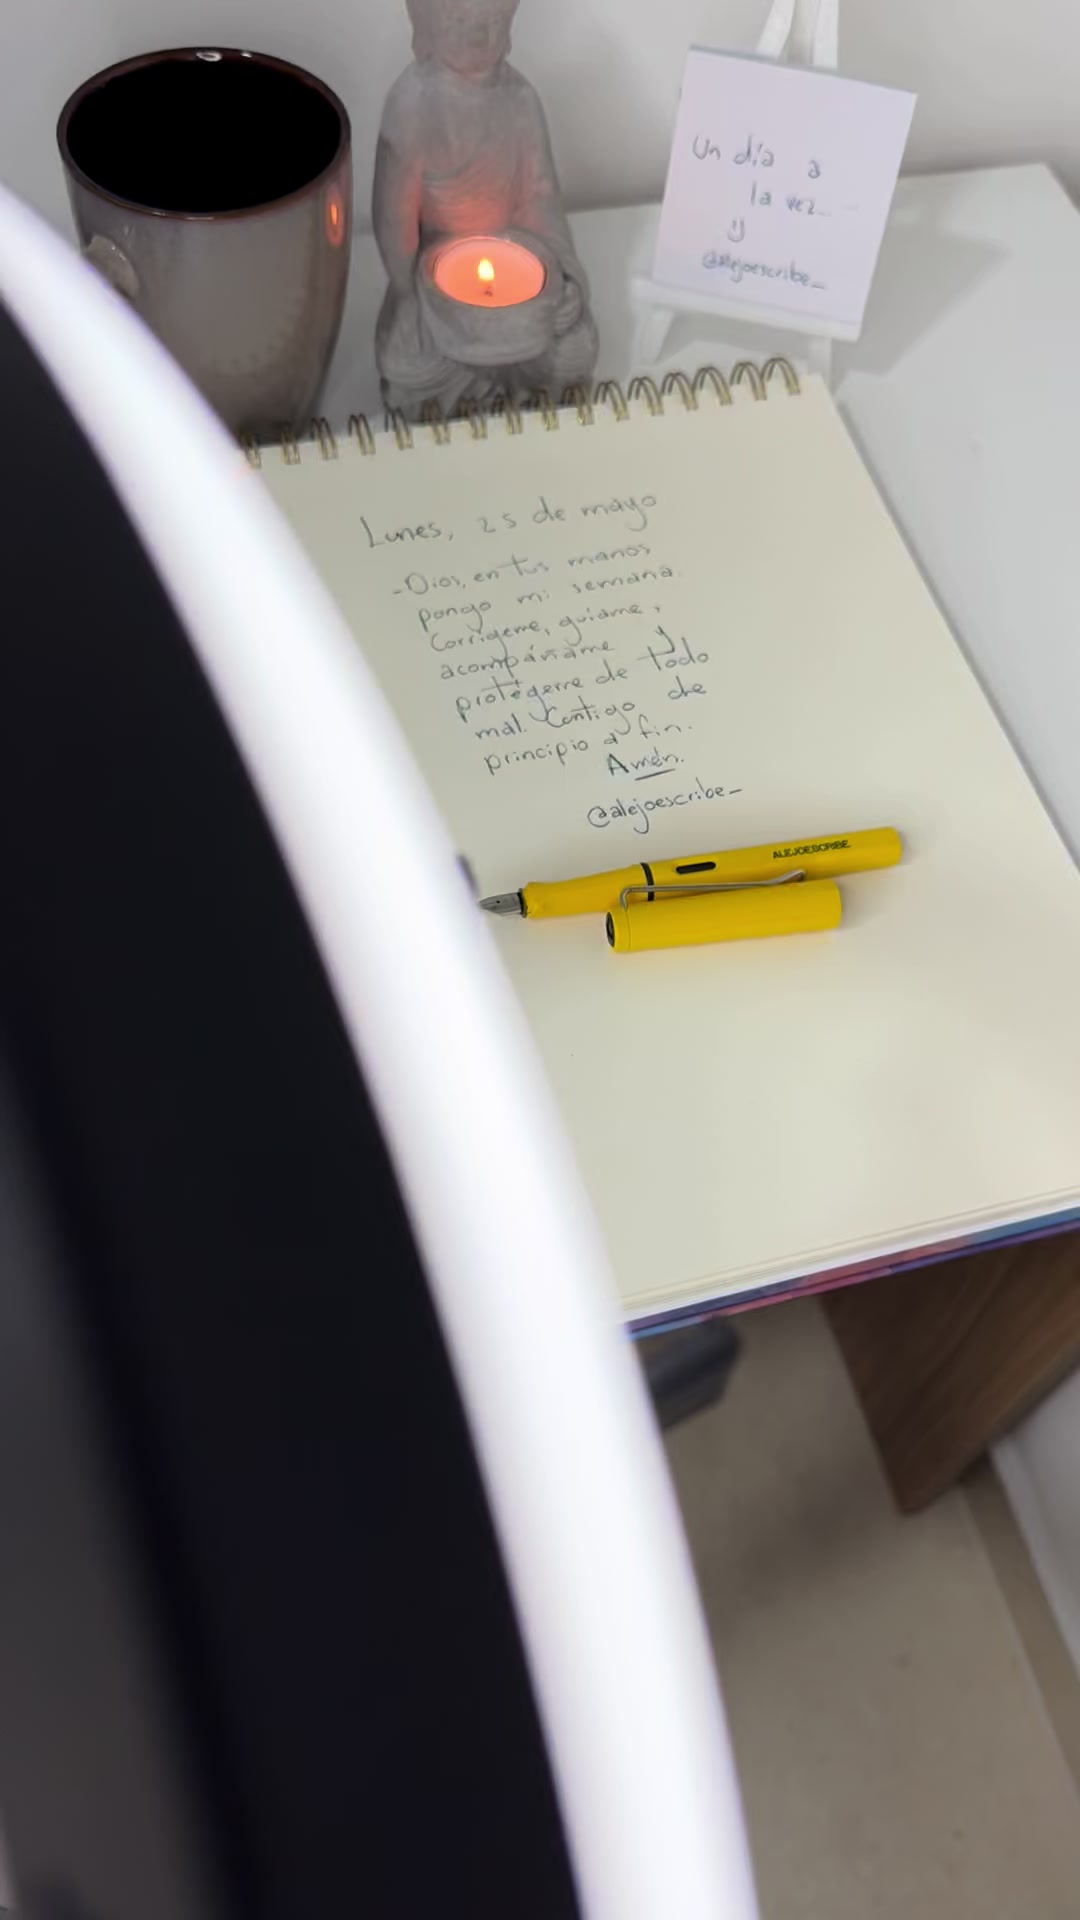 Un día a
la vez...
:)
@alejoescribe_
Lunes, 25 de mayo
-Dios, en tus manos
pongo mi semana.
Corrígeme, guíame,
acompáñame y
protégeme de todo
mal. Contigo de
principio a fin.
Amén.
@alejoescribe_
ALEJOESCRIBE